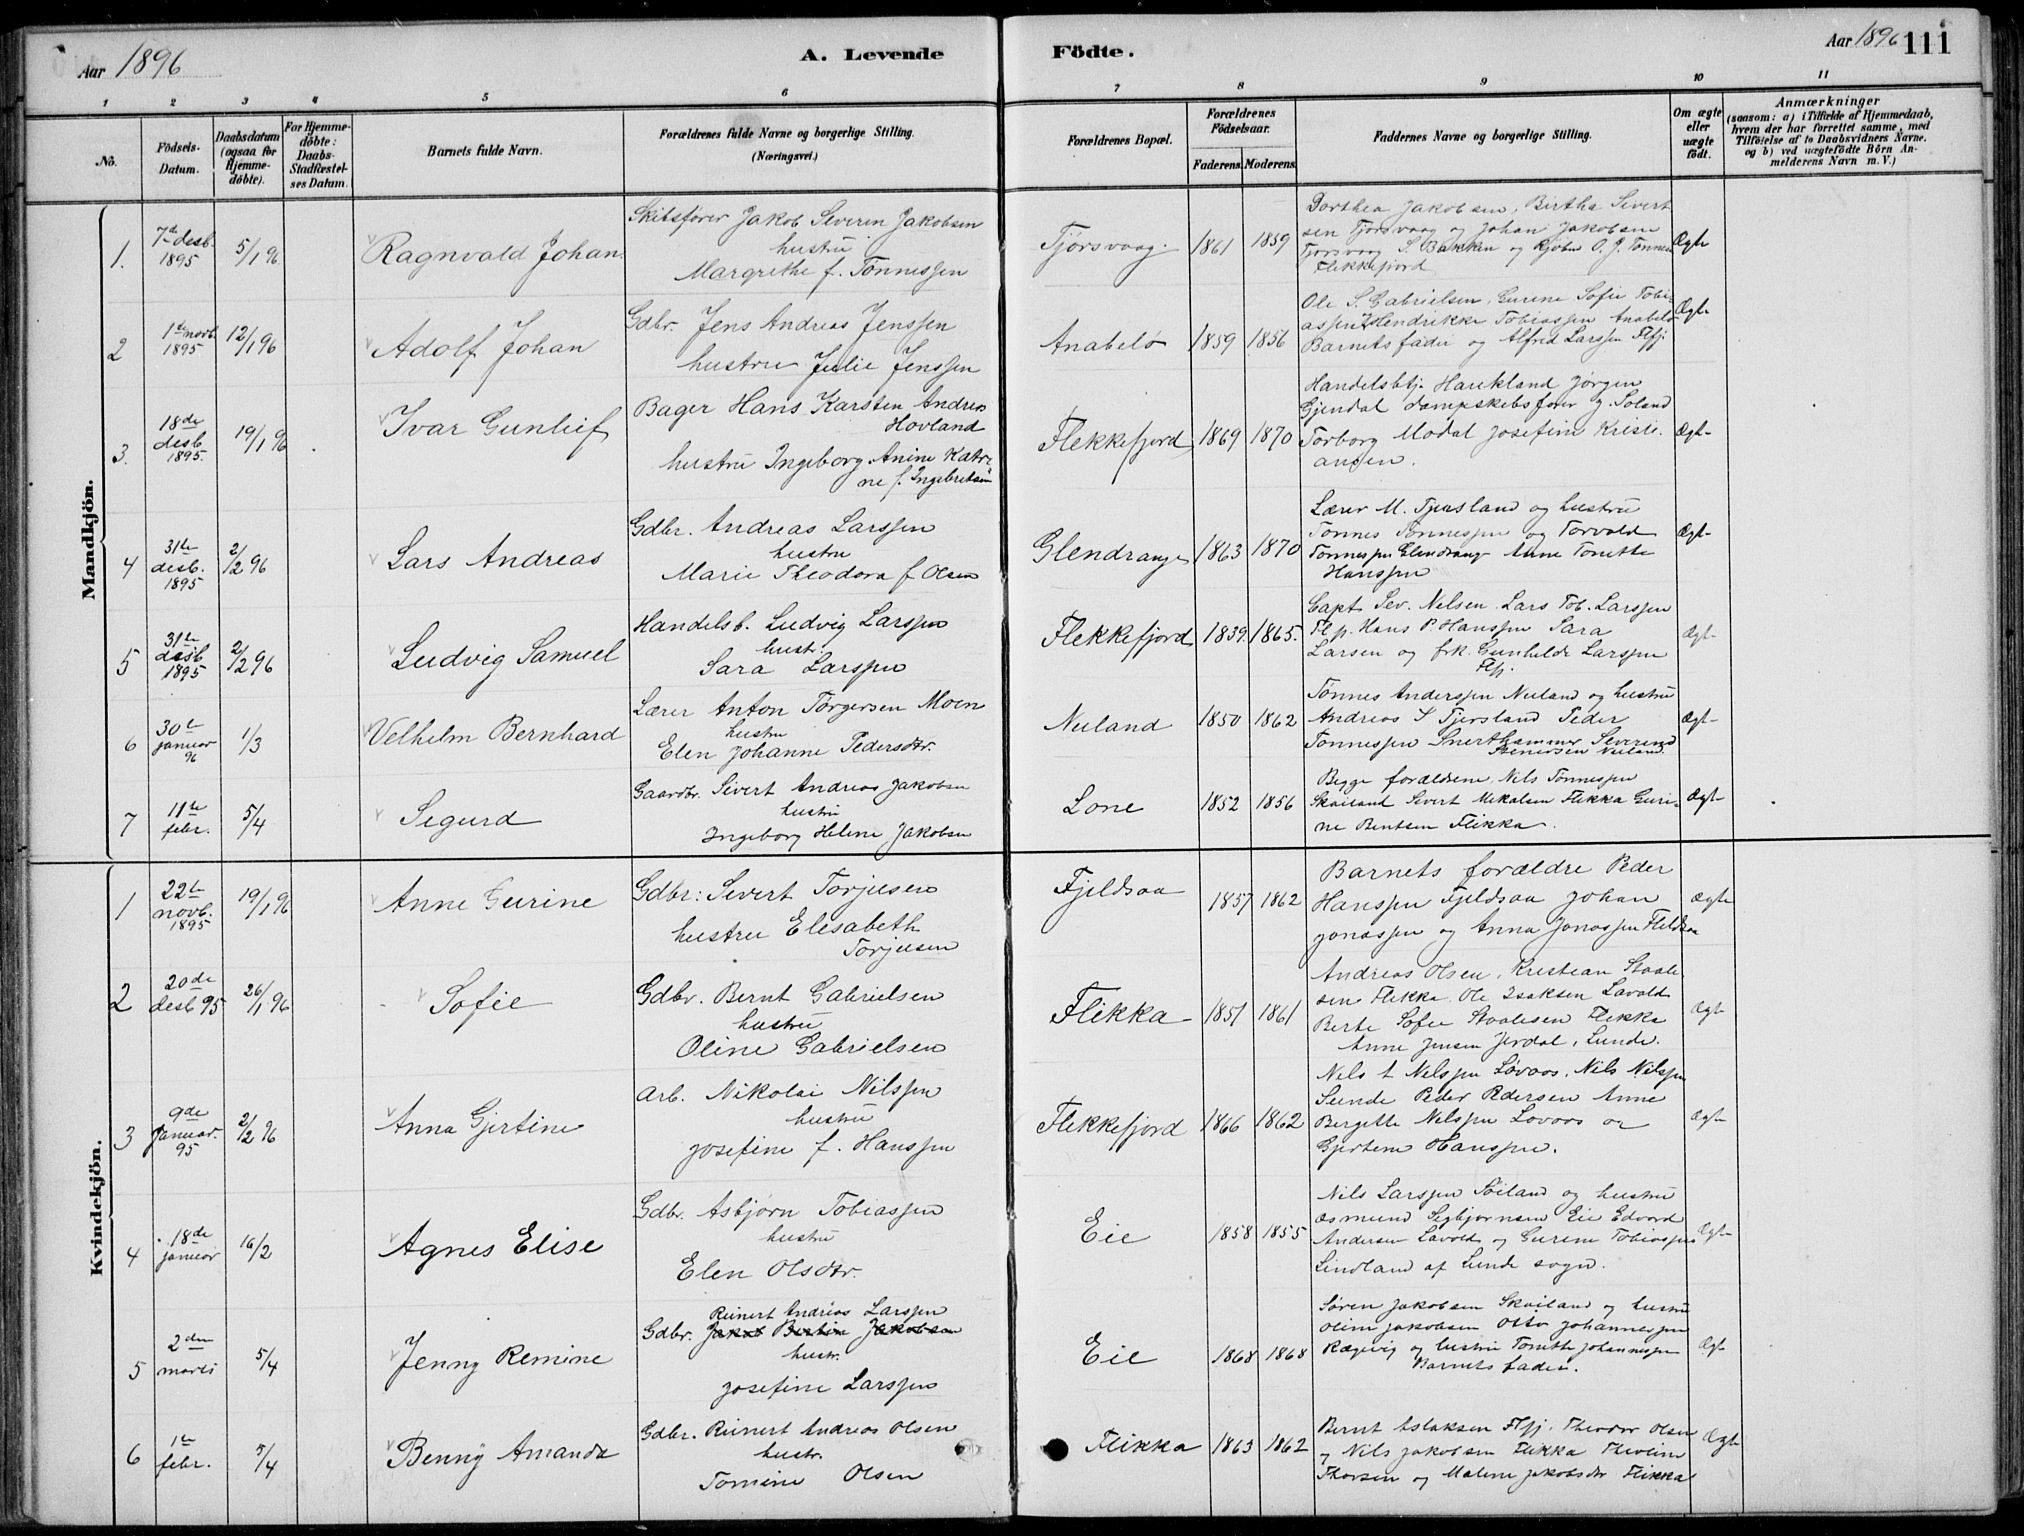 Aar 1896
A. Levende
Födte.
Aar 1896 111
1 2 3 4 5 6 7 8 9 10 11
No.
Födsels-Datum.
Daabsdatum (ogsaa for Hjemme-döbte).
For Hjemme-döbte: Daabs-Stadfæstel-ses Datum.
Barnets fulde Navn.
Forældrenes fulde Navne og borgerlige Stilling. (Næringsvei.)
Forældrenes Bopæl.
Forældrenes Födselsaar.
Faderens. Moderens.
Faddernes Navne og borgerlige Stilling.
Om ægte eller uægte födt.
Anmærkninger (saasom: a) i Tilfælde af Hjemmedaab, hvem der har forrettet samme, med Tilföielse af to Daabsvidners Navne. og b) ved uægtefödte Börn An-melderens Navn m. V.)
Mandkjön.
1. 7de desb. 1895 5/1 96 Ragnvald Johan.
Skibsfører Jakob Severin Jakobsen
hustru
Margrethe f. Tönnessen
Tjörsvaag. 1861 1859
Dorthea Jakobsen, Birtha Sivert
sen Tjorsvaag og Johan Jakobsen
Tjorsvaag S. Bakken og Kjøbm O. J. Tønnes
Flekkefjord
Ægte
2 1de novb. 1895 12/1 96 Adolf Johan
Gdbr. Jens Andreas Jenssen
hustru Julie Jenssen
Anabelø 1859 1856
Ole S. Gabrielsen, Gurine Sofie Tobi-
assen Hendrikke Tobiassen Anabelø
Barnets fader og Alfred Larssen Flfj.
Ægte
3. 18de desb 1895. 19/1 96 Ivar Gunleif
Bager Hans Karsten Andreas
Hovland
hustru Ingeborg Anine Katri-
ne f. Ingebretsen
Flekkefjord 1869 1870
Handelsbtj. Haukland Jørgen
Gjendal dampskibsfører J. Soland
Torborg Modal Josefine Kristi-
ansen.
Ægt-
4 31te desb. 1895 2/2 96 Lars Andreas
Gdbr. Andreas Larssen
hustru
Marie Theodora f Olsen
Glendrange 1863 1870
Lærer M. Tjersland og hustru
Tønnes Tønnessen og Torvald
Tønnessen Glendrange Anne Tonette
Hanssen
Ægt-
5 31te desb 1895 2/2 96 Ludvig Samuel
Handelsb. Ludvig Larssen
hust.
Sara Larssen
Flekkefjord 1839. 1865.
Capt Sev. Nelsen. Lars Tob. Larssen
Flfj. Hans P. Hanssen Sara
Larsen og frk. Gunhilde Larssen
Flfj
Ægt-
6 30te januar 96 1/3 Velhelm Bernhard
Lærer Anton Törgersen Moen
hustru
Elen Johanne Pedersdtr.
Nuland 1850 1862
Tønnes Anderssen Nuland og hustru
Andreas S Tjersland Peder
Tønnessen Snerthammer Severine
Stenersen Nuland.
Ægt-
7 11te febr. 5/4 Segurd
Gaardbr. Sivert Andreas Jakobsen
hustru
Ingeborg Helene Jakobsen
Lone 1852 1856
Begge forældrene, Nils Tønnessen
Skoiland Sivert Mikalsen Flikka Guri-
ne Bentsen Flikka.
Ægt-
Kvindekjön.
1 22te novb. 1895 19/1 96 Anne Gurine
Gdbr: Sivert Torjusen
hustru Elesabeth
Torjusen
Fjeldsaa 1857 1862
Barnets forældre Peder
Hanssen Fjeldsaa Johan
Jonassen og Anna Jonassen Fleldsaa
Ægte
2 20de desb 95 26/1 96 Sofie
Gdbr. Bernt Gabrielsen
hustru
Oline Gabrielsen
Flikka 1851 1861
Andreas Olsen, Kristian Staale
sen Flikka Ole Isaksen Lavold
Berte Sofie Staalesen Flikka
Anne Jensen Jerdal, Lunde.
Ægt-
3 9de Januar. 95 2/2 96 Anna Gjertine
Arb. Nikolai Nilssen
hustru
Josefine f. Hanssen
Flekkefjord 1866 1862
Nils t Nelssen Løvaas, Nils Nilssen
Lunde Peder Pedersen Anne
Bergette Nilssen Lovaas og
Gjertine Hanssen.
Ægt-
4 18de januar 16/2 Agnes Elise
Gdbr. Asbjørn Tobiassen
hustru
Elen Olsdtr.
Eie 1858 1855
Nils Larssen Søiland og hustru
Osmund Segbjørnsen Eie Edvard
Andersen Lavold og Gurine Tobiassen
Lindland af Lunde sogn.
Ægt-
5 2den marts 5/4 Jenny Remine
Reinert Andreas Larssen
Gdbr. Jakob Bertin Jakobsen
hustr.
Josefine Larssen
Eie 1868 1868
Søren Jakobsen Skoiland og hustru
Oline Jakobsen Otto Johannessen
Rægevig og hustru Tonette Johannessen
Barnets fader.
Ægt
6 1te febr. 5/4 Benny Amanda
Gdbr. Reinert Andreas Olsen
hustr.
Tomine Olsen
Flikka 1863 1862
Bernt Aslaksen Flfj. Theodor Olsen
og Nils Jakobsen Flikka Theoline
Thorsen og Maline Jakobsdtr Flikka
Ægte